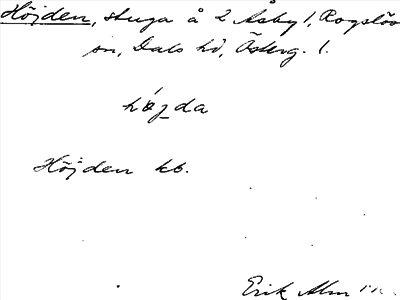 Höjden, stuga å 2 Åsby 1, Rogslösa
sn, Dals hd, Österg. l.
hø̀jda
Höjden kb.
Erik Alm